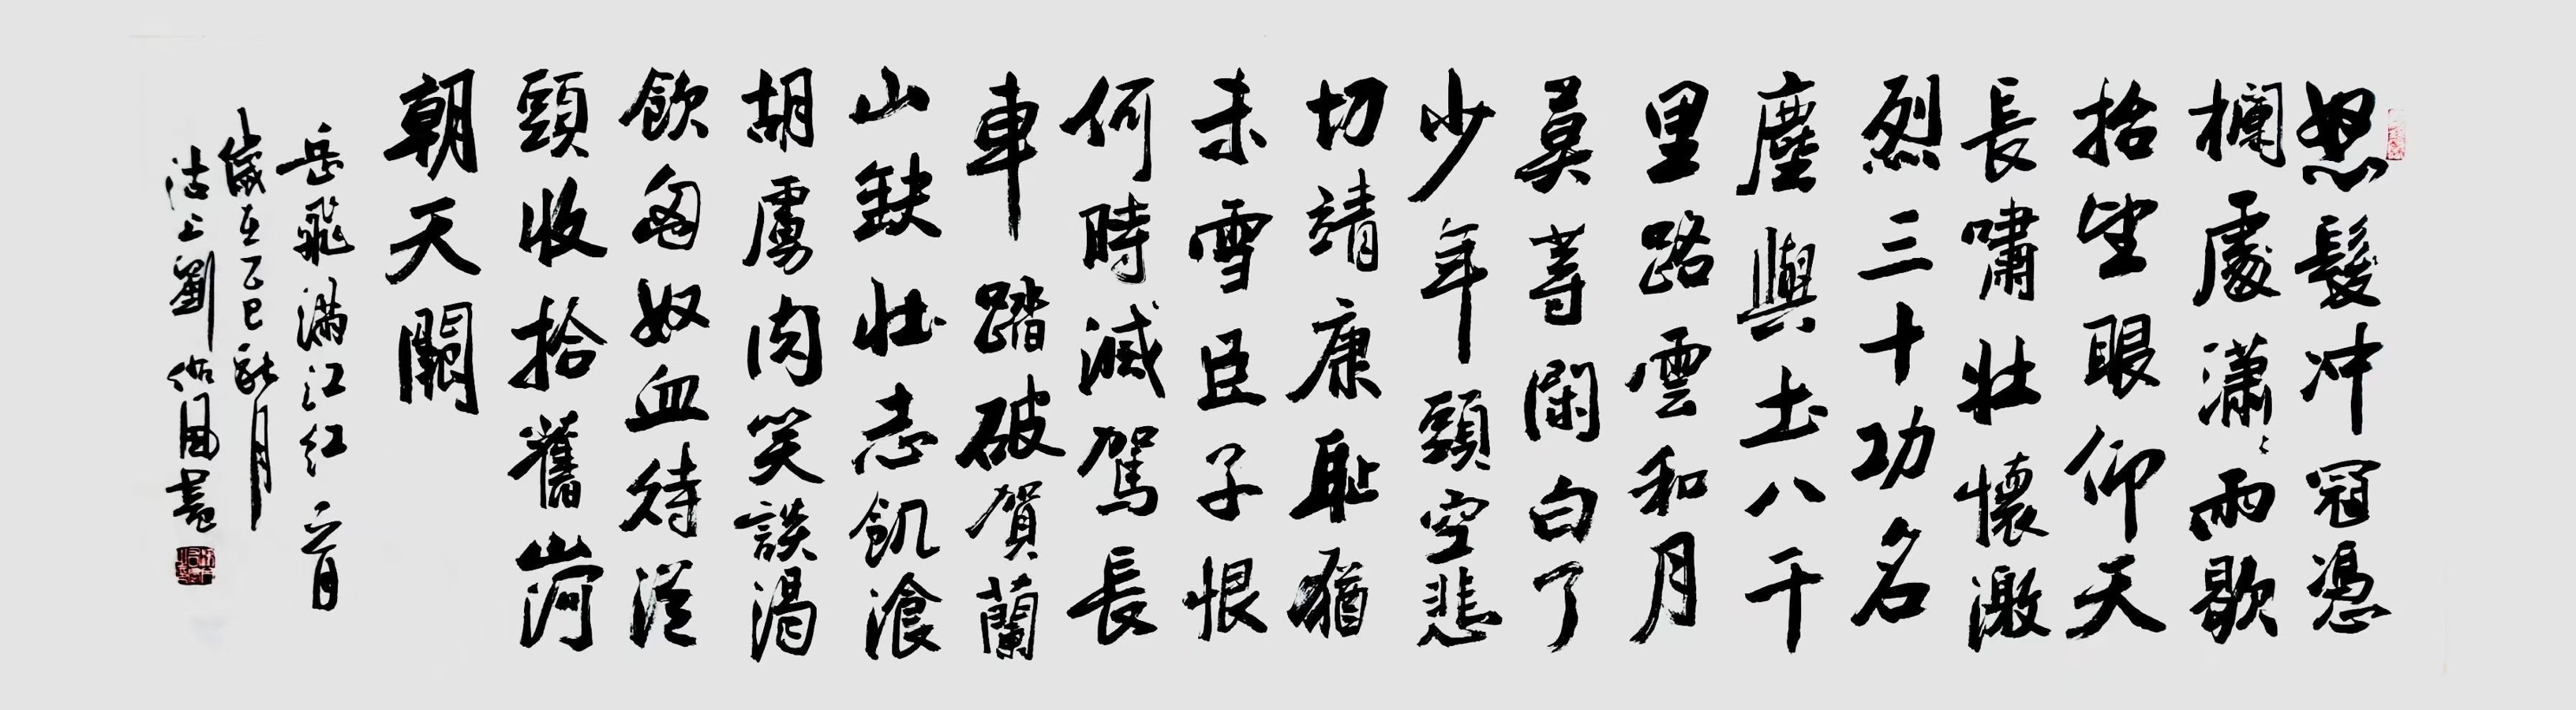 怒髮冲冠憑
欄處瀟〻雨歇
抬望眼仰天
長嘯壯懷激
烈三十功名
塵與土八千
里路雲和月
莫等閑白了
少年頭空悲
切靖康耻猶
未雪臣子恨
何時滅駕長
車踏破賀蘭
山缺壯志飢湌
胡虜肉笑談渴
飲匈奴血待從
頭收拾舊山河
朝天闕
岳飛滿江红一首
歲在乙巳秋月
沽上劉佑国書